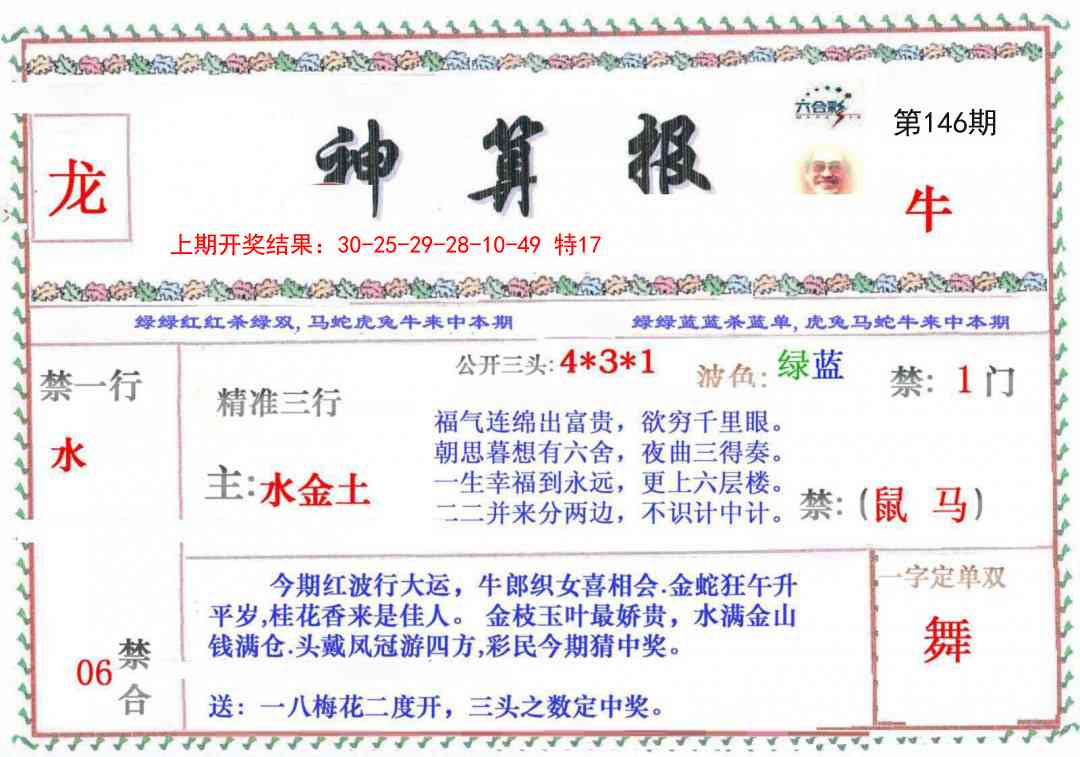 六合彩
第146期
龙
神算报
牛
上期开奖结果：30-25-29-28-10-49 特17
绿绿红红杀绿双,马蛇虎兔牛来中本期
绿绿蓝蓝杀蓝单,虎兔马蛇牛来中本期
禁一行
水
精准三行
主:水金土
公开三头:4*3*1
波色:绿蓝
禁:1门
福气连绵出富贵，欲穷千里眼。
朝思暮想有六舍，夜曲三得奏。
一生幸福到永远，更上六层楼。
二二并来分两边，不识计中计。
禁:(鼠 马)
今期红波行大运，牛郎织女喜相会.金蛇狂午升
平岁,桂花香来是佳人。金枝玉叶最娇贵，水满金山
钱满仓.头戴凤冠游四方,彩民今期猜中奖。
送：一八梅花二度开，三头之数定中奖。
一字定单双
舞
06
禁
合